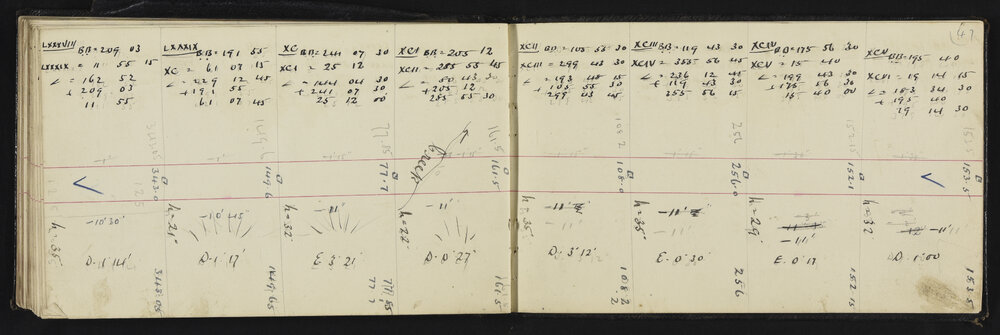 LXXXVIII BB = 209 03
LXXXIX = 11 55 15
< = 162 52
+ 209 03
11 55
343.0
✓
h = 35'
-10'30"
D. 1' 14"
343.05
LXXXIX BB = 191 55
XC = 61 07 15
< = 229 12 45
+ 191 55
61 07 45
149.6
h = 21'
-10' 45"
D. 1' 17"
149.65
XC BB = 241 07 30
XCI = 25 12
< = 144 04 30
+ 241 07 30
25 12 00
77.85
77.7
h = 32
-11'
E. 3' 21"
77.85
77.7
XCI BB = 205 12
XCII = 285 55 45
< = 80 43 30
+ 205 12
285 55 30
Creek
161.5
161.5
h = 22'
-11'
D. 0' 27"
161.5
XCII BB = 105 55 30
XCIII = 299 43 30
< = 193 48 15
+ 105 55 30
299 43 45
108.2
108.0
h = 35'
-11'
D. 3' 12"
108.2
XCIII BB = 119 43 30
XCIV = 355 56 30
< = 236 12 45
+ 119 43 30
355 56 15
256
256.0
-11'
E. 0' 30"
256
XCIV BB = 175 56 30
XCV = 15 40
< = 199 43 30
+ 175 56 30
15 40 00
152.15
152.1
h = 29'
-11'
E. 0' 17"
152.15
47
XCV BB = 195 40
XCVI = 19 14 15
< = 183 34 30
+ 195 40
19 14 30
153.5
153.5
✓
h = 32
-11'
D. 1' 00"
153.5